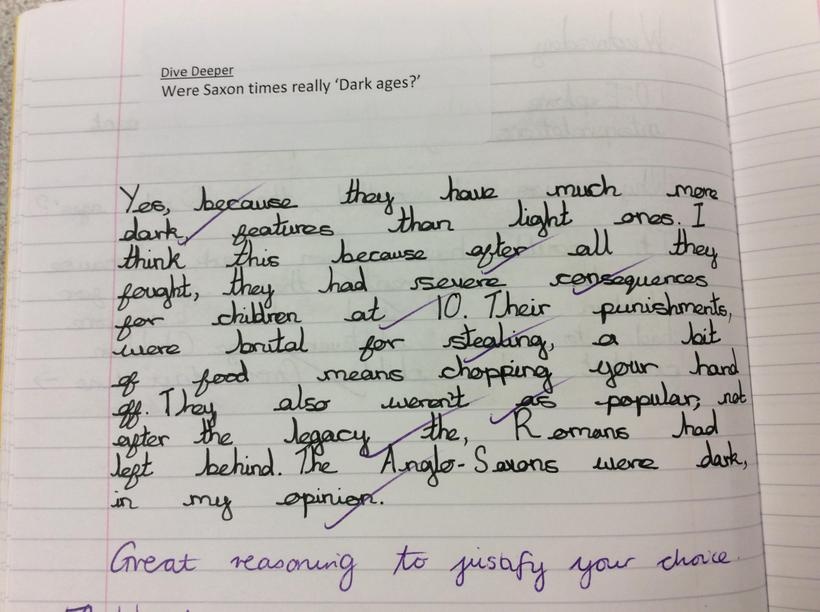 Dive Deeper
Were Saxon times really 'Dark ages?'
Yes, because they have much more
dark, features than light ones. I
think this because after all they
fought, they had severe consequences
for children at 10. Their punishments,
were brutal for stealing, a bit
of food means chopping your hand
off. They also weren't as popular, not
after the legacy the, Romans had
left behind. The Anglo-Saxons were dark,
in my opinion.
Great reasoning to justify your choice.